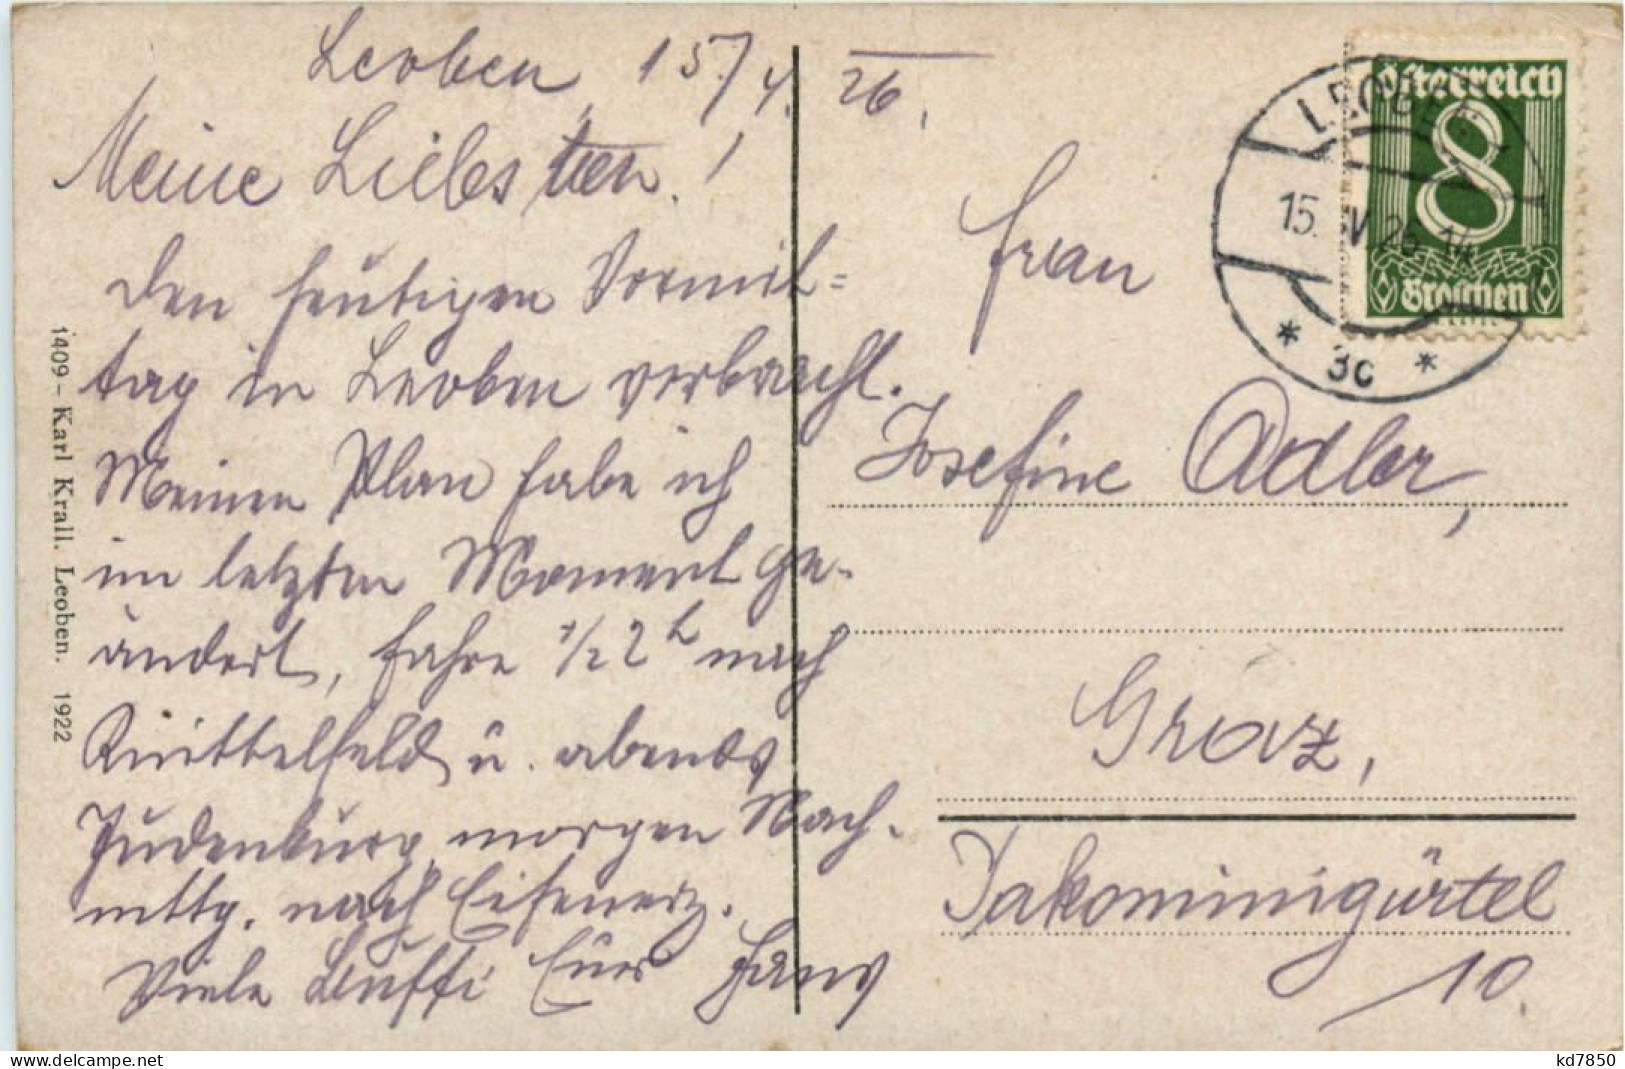 Leoben, 15./4. 26.
Meine Liebsten!
Den heutigen Vormit=
tag in Leoben verbracht.
Meinen Plan habe ich
im letzten Moment ge-
ändert, fahre 1/2 2 h nach
Knittelfeld u. abends
Judenburg, morgen Nach-
mttg. nach Eisenerz.
Viele Bussi Euer Hans
Frau
Josefine Adler,
Graz,
Jakominigürtel
10.
Österreich
8
Groschen
LEOBEN
15. IV. 26. 14
* 3c *
1409 – Karl Krall. Leoben. 1922
delcampe.net
kd7850